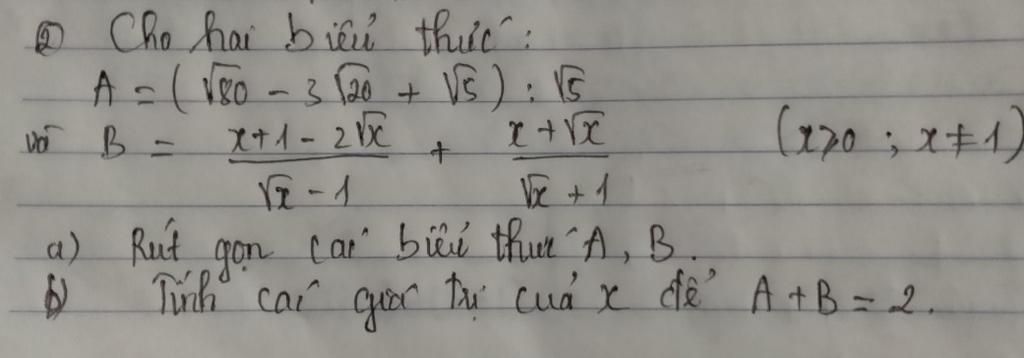 ② Cho hai biểu thức:
A = (√80 - 3√20 + √5) : √5
và B = (x + 1 - 2√x)/(√x - 1) + (x + √x)/(√x + 1) (x ≥ 0 ; x ≠ 1)
a) Rút gọn các biểu thức A, B.
b) Tính các giá trị của x để A + B = 2.